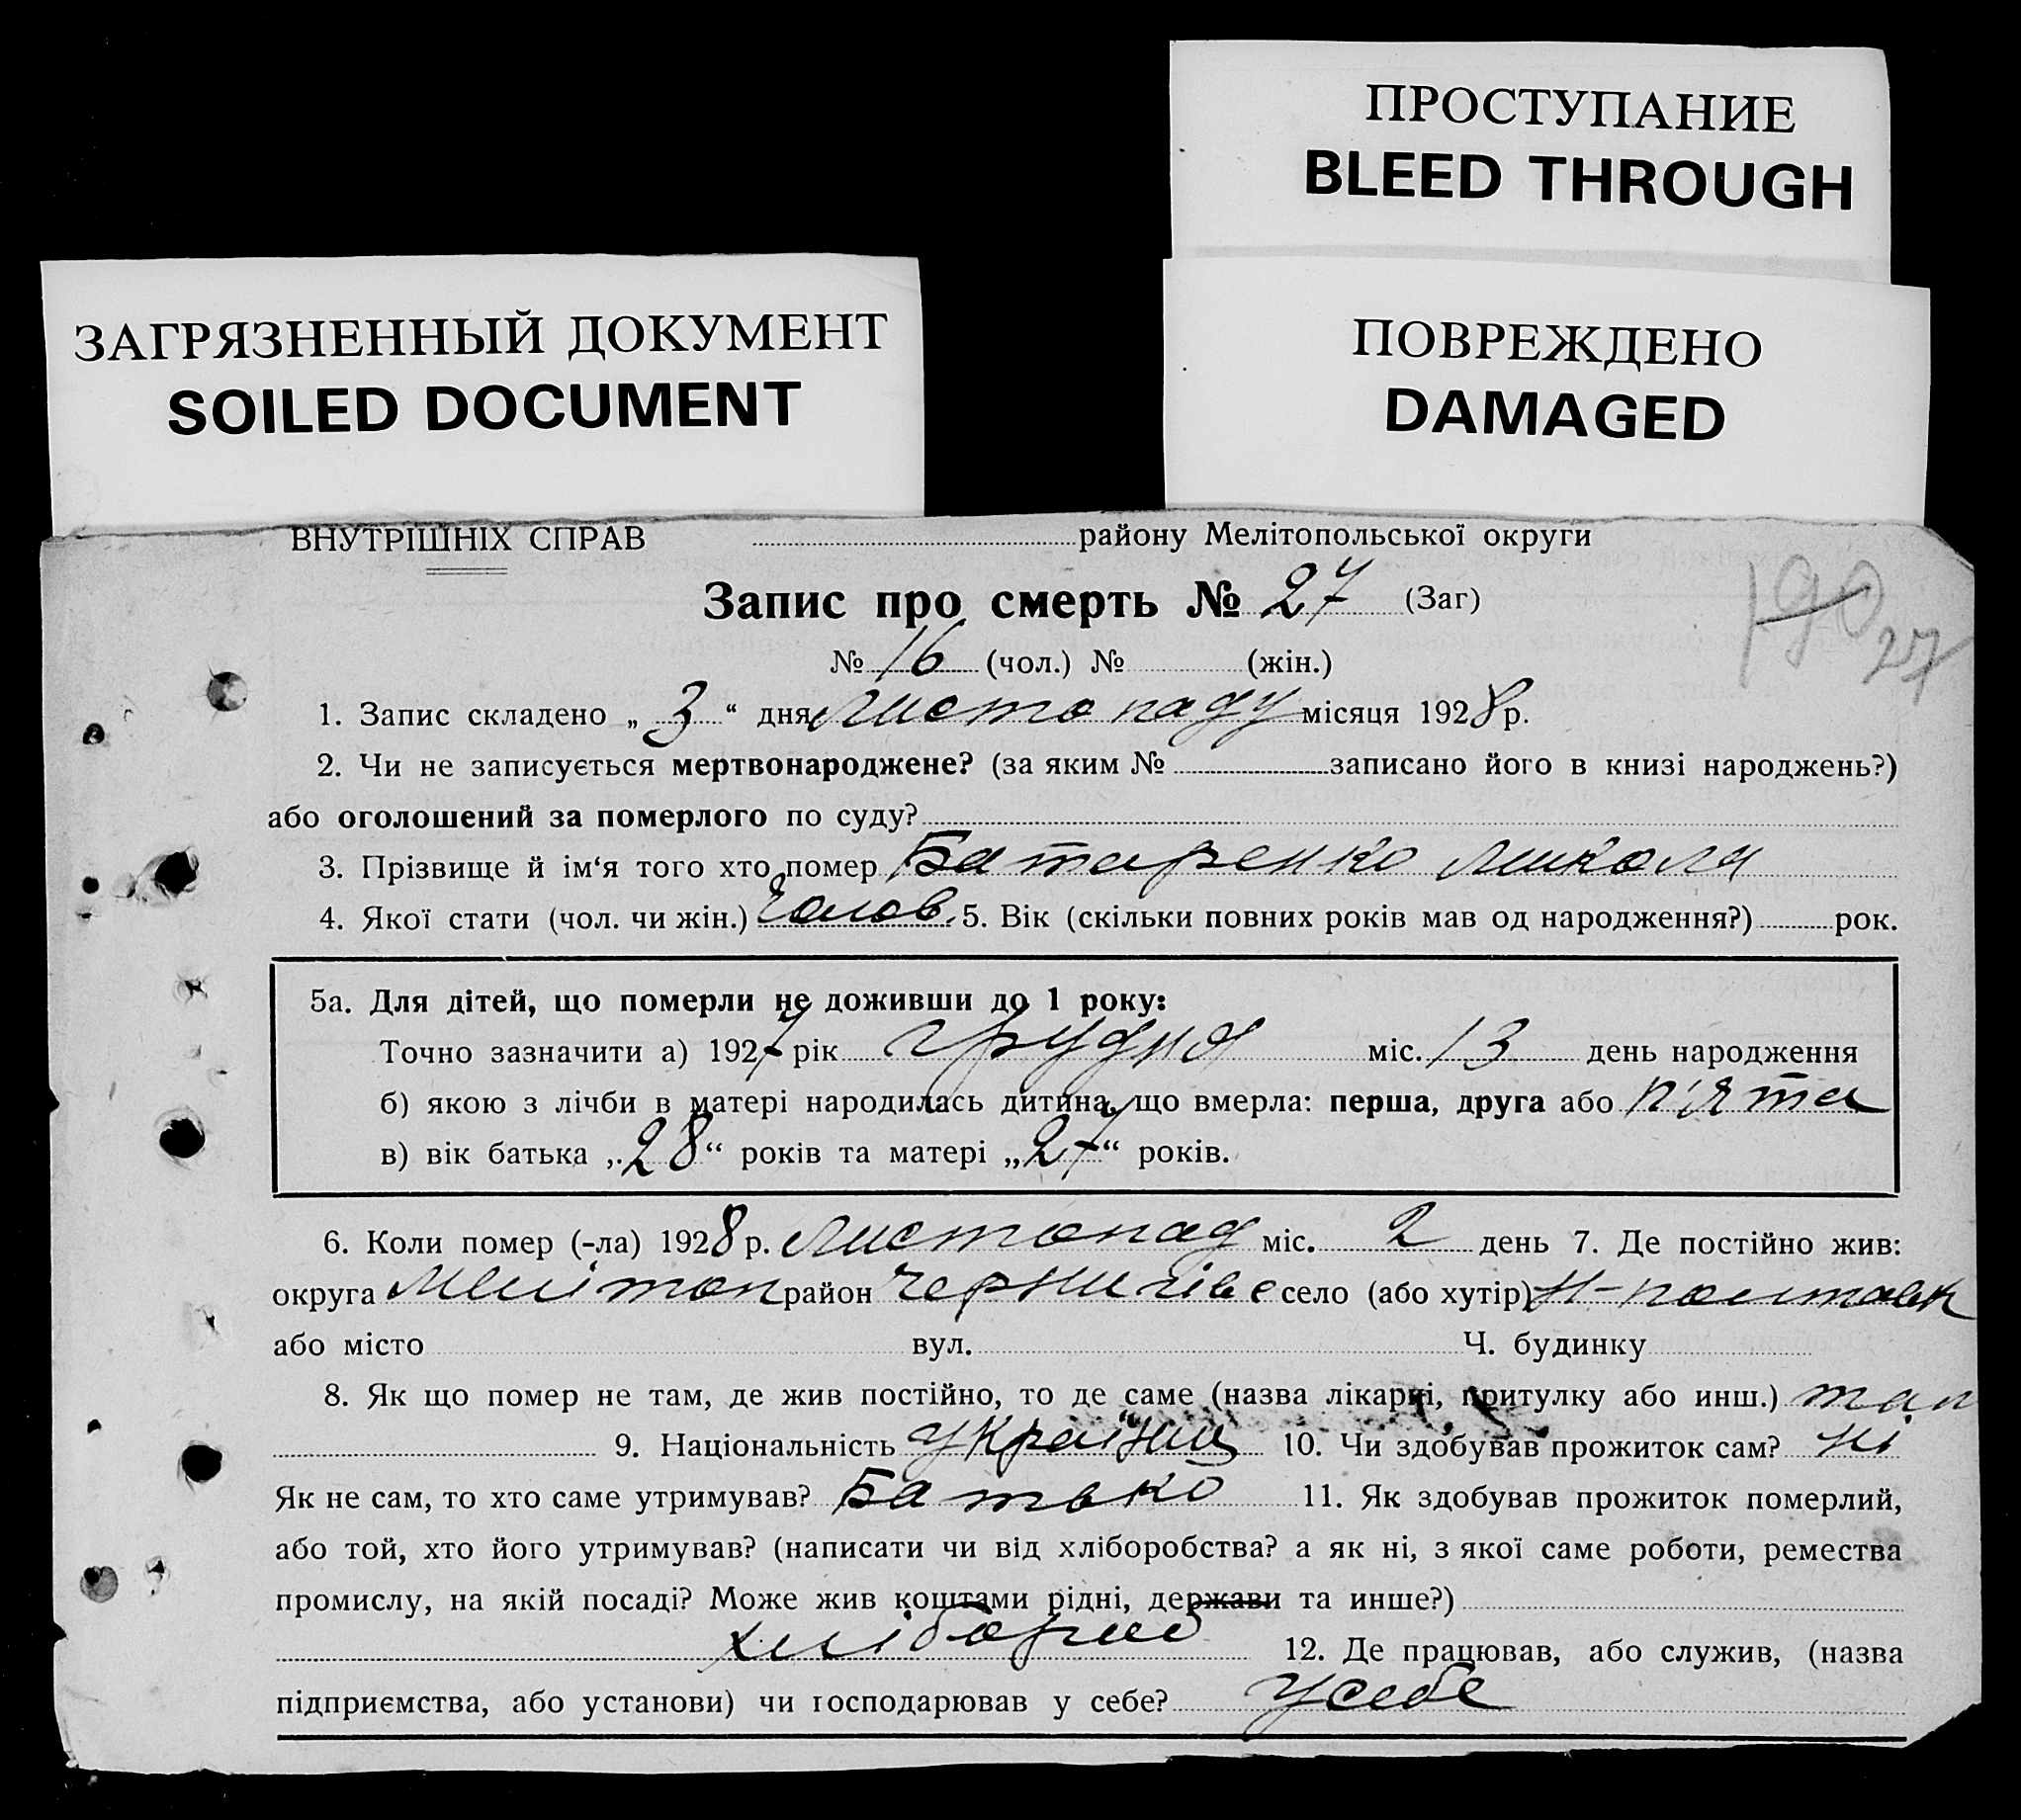 ПРОСТУПАНИЕ
BLEED THROUGH
ЗАГРЯЗНЕННЫЙ ДОКУМЕНТ
SOILED DOCUMENT
ПОВРЕЖДЕНО
DAMAGED
ВНУТРІШНІХ СПРАВ району Мелітопольської округи
190
27
Запис про смерть № 27 (Заг)
№ 16 (чол.) № (жін.)
1. Запис складено „ 3 “ дня листопаду місяця 1928 р.
2. Чи не записується мертвонароджене? (за яким № записано його в книзі народжень?)
або оголошений за померлого по суду?
3. Прізвище й ім‘я того хто помер Батаренко Микола
4. Якої стати (чол. чи жін.) Чолов. 5. Вік (скільки повних років мав од народження?) рок.
5а. Для дітей, що померли не доживши до 1 року:
Точно зазначити а) 1927 рік грудня міс. 13 день народження
б) якою з лічби в матері народилась дитина, що вмерла: перша, друга або п'ята
в) вік батька „ 28 “ років та матері „ 27 “ років.
6. Коли помер (-ла) 1928 р. листопад міс. 2 день 7. Де постійно жив:
округа Мелітоп район Чернигівс село (або хутір) Н-полтавк
або місто вул. Ч. будинку
8. Як що помер не там, де жив постійно, то де саме (назва лікарні, притулку або инш.) там
9. Національність українц 10. Чи здобував прожиток сам? ні
Як не сам, то хто саме утримував? Батько 11. Як здобував прожиток померлий,
або той, хто його утримував? (написати чи від хліборобства? а як ні, з якої саме роботи, ремества
промислу, на якій посаді? Може жив коштами рідні, держави та инше?)
хлібороб 12. Де працював, або служив, (назва
підприємства, або установи) чи господарював у себе? у себе